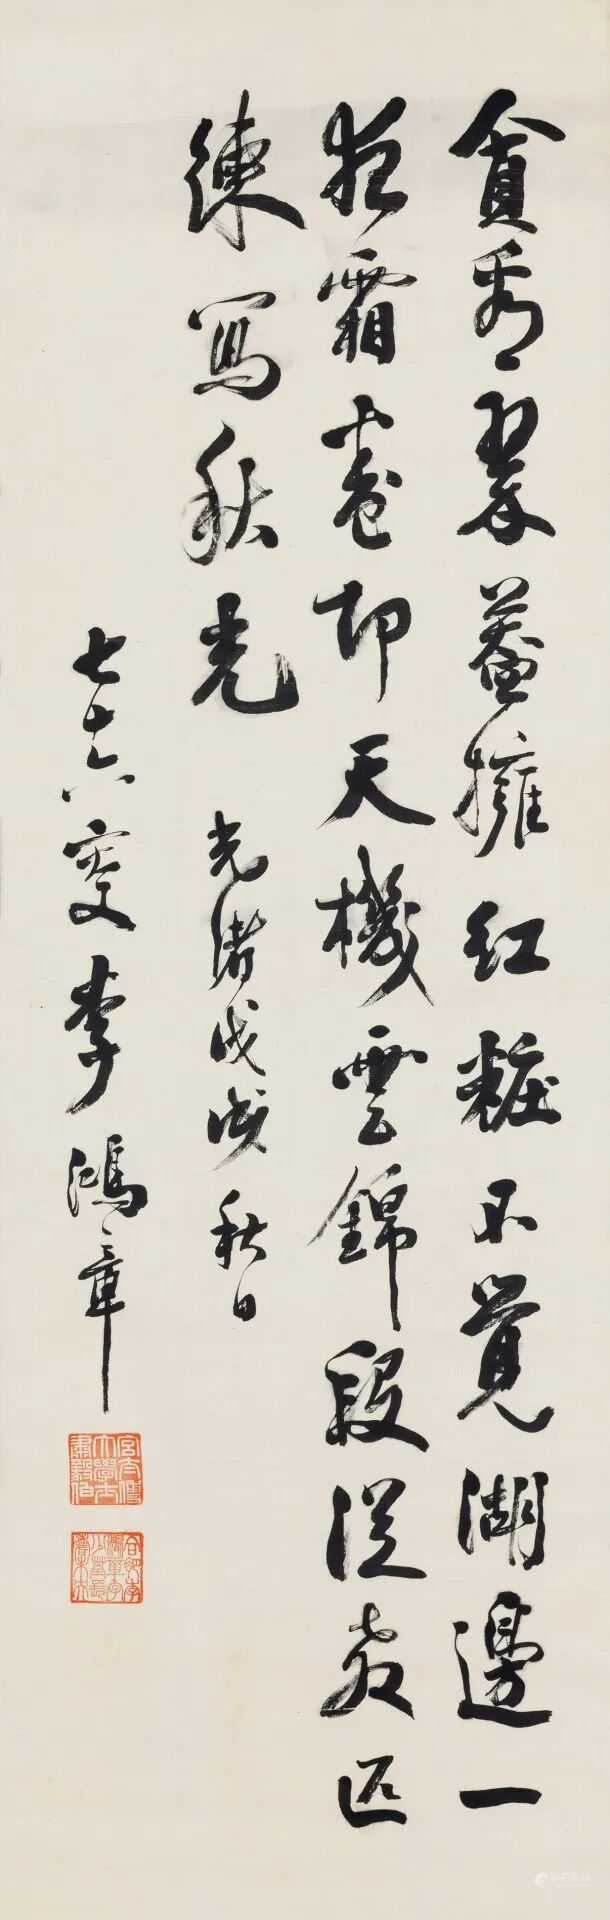 貪看翠蓋擁紅粧不覺湖邊一
夜霜卷却天機雲錦段從教匹
練寫秋光 光緒戊戌秋日
七十六叟李鴻章
宮太傅大學士肅毅伯